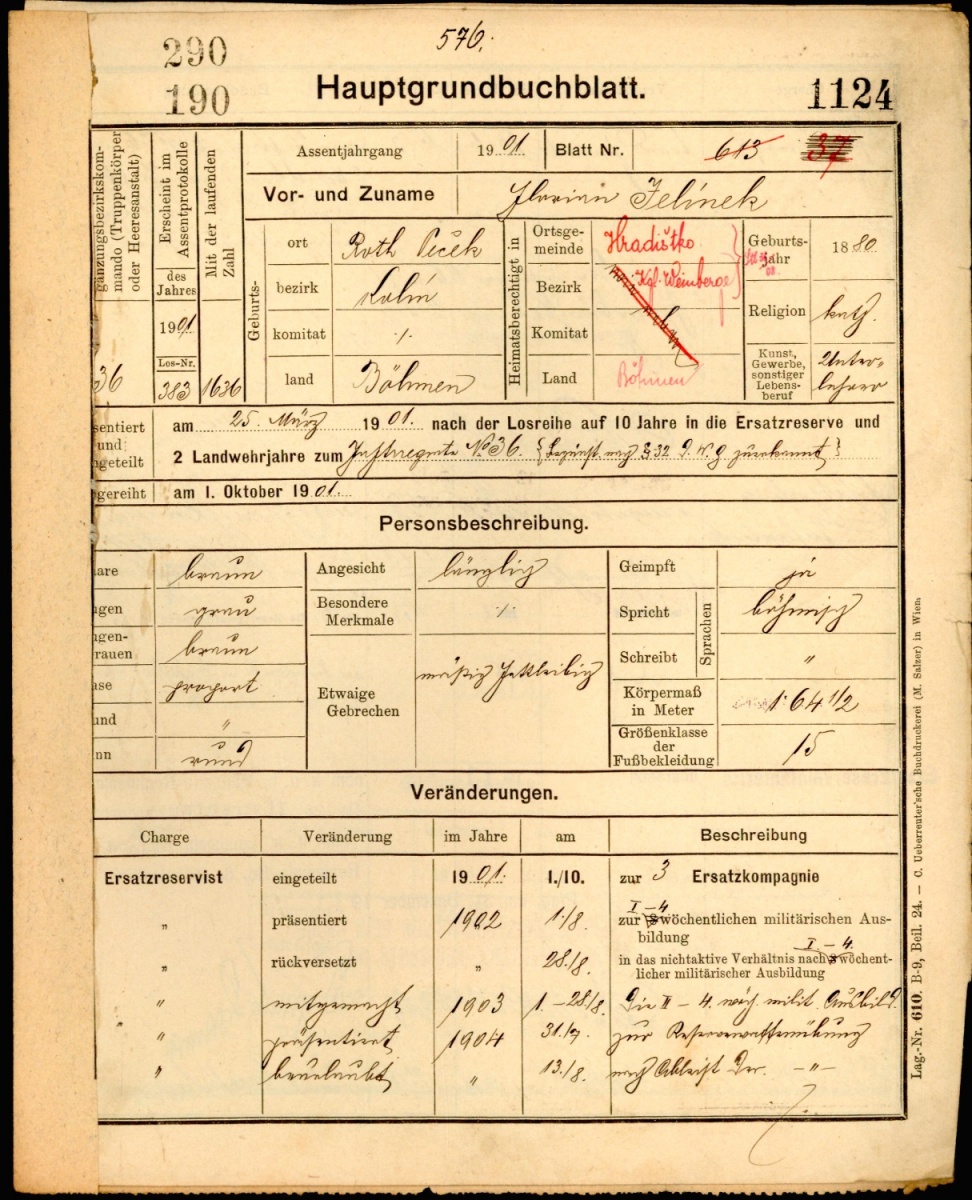 576.
290
190
Hauptgrundbuchblatt.
1124
gänzungsbezirkskom-
mando (Truppenkörper
oder Heeresanstalt)
36
Erscheint im
Assentprotokolle
des
Jahres
1901
Los-Nr.
383
Mit der laufenden
Zahl
1636
Assentjahrgang 1901 Blatt Nr. 613 37
Vor- und Zuname Florian Jelínek
Geburts-
ort Roth Peček
bezirk Kolín
komitat ·/·
land Böhmen
Heimatsberechtigt in
Ortsge-
meinde Hradištko
Bezirk Kgl. Weinberge
Komitat
Land Böhmen
Geburts-
jahr 1880
Religion kath.
Kunst,
Gewerbe,
sonstiger
Lebens-
beruf
Unter-
lehrer
sentiert
und
geteilt
am 25. März 1901. nach der Losreihe auf 10 Jahre in die Ersatzreserve und
2 Landwehrjahre zum Inftrregmte No 36. {Begünst. nach § 32 d. W. g. zuerkannt}
gereiht am 1. Oktober 1901.
Personsbeschreibung.
are braun
gen grau
gen-
rauen braun
ase proport.
und "
nn rund
Angesicht länglich
Besondere
Merkmale ·/·
Etwaige
Gebrechen mäßig
Geimpft ja
Sprachen
Spricht böhmisch
Schreibt "
Körpermaß
in Meter 1·64 1/2
Größenklasse
der
Fußbekleidung 15
Veränderungen.
Charge Veränderung im Jahre am Beschreibung
Ersatzreservist eingeteilt 1901. 1./10. zur 3 Ersatzkompagnie
" präsentiert 1902 1./8. zur I-4 8wöchentlichen militärischen Aus-
bildung
" rückversetzt " 28./8. in das nichtaktive Verhältnis nach I.-4. 8wöchent-
licher militärischer Ausbildung
" mitgemacht 1903 1.-28./8. Die II-4. wöch. milit. Ausbild.
" präsentiert 1904 31./7. zur Reservewaffenübung
" beurlaubt " 13./8. nach Ableist. der. -"-
Lag.-Nr. 610. B-9, Beil. 24. — C. Ueberreuter'sche Buchdruckerei (M. Salzer) in Wien.